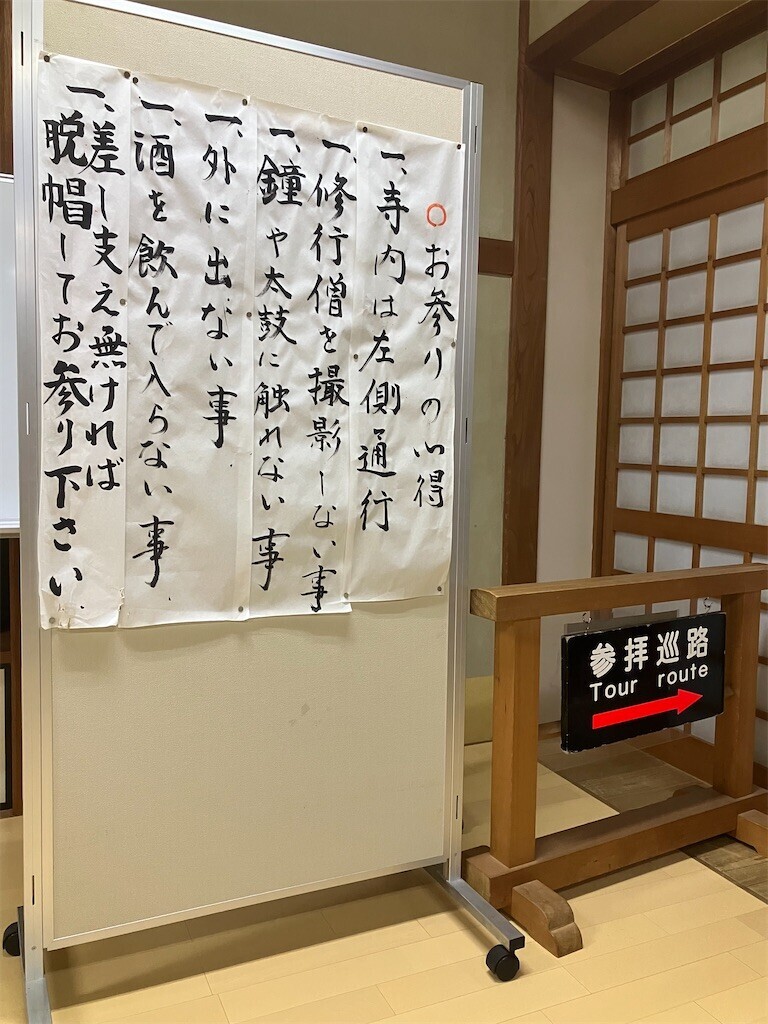 ○お参りの心得
一、寺内は左側通行
一、修行僧を撮影しない事
一、鐘や太鼓に触れない事
一、外に出ない事
一、酒を飲んで入らない事
一、差し支え無ければ
脱帽してお参り下さい
参拝巡路
Tour route